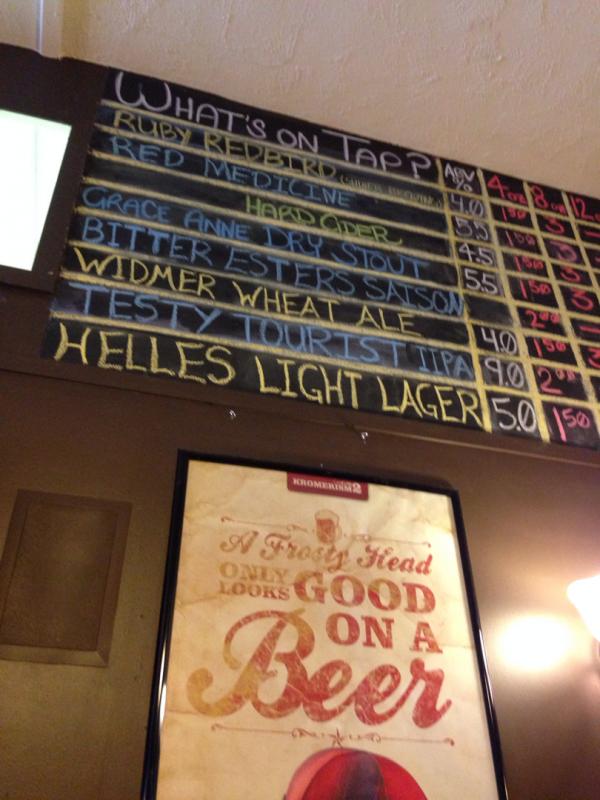 WHAT'S ON TAP? ABV % 4oz 8oz 12oz
RUBY REDBIRD 4.0 1.50 3
RED MEDICINE 5.5 1.50 3
HARD CIDER 4.5 1.50 3
GRACE ANNE DRY STOUT 5.5 1.50 3
BITTER ESTERS SAISON 2.00
WIDMER WHEAT ALE 4.0 1.50 3
TESTY TOURIST IIPA 9.0 2.00
HELLES LIGHT LAGER 5.0 1.50
KROMERISM 2
A Frosty Head
ONLY LOOKS GOOD
ON A
Beer